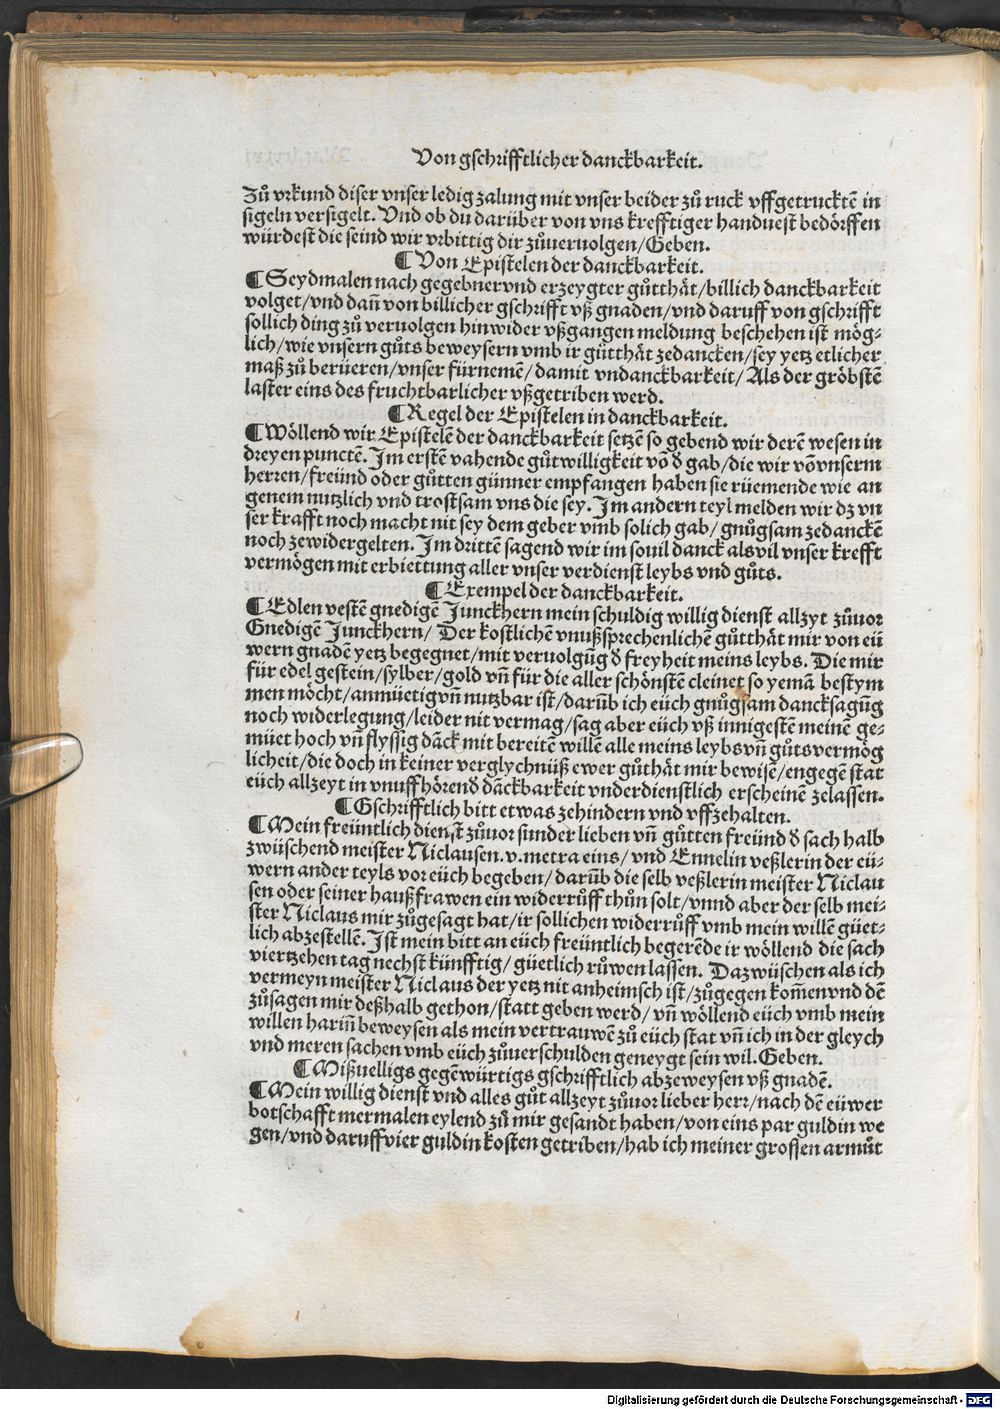 Von gschrifftlicher danckbarkeit.
Zů vrkund diser vnser ledig zalung mit vnser beider zů ruck vffgetrucktē in
sigeln versigelt. Vnd ob du darüber von vns krefftiger handuest bedörffen
würdest die seind wir vrbittig dir zůuervolgen/Geben.
¶ Von Epistelen der danckbarkeit.
¶ Seydmalen nach gegebner vnd erzeygter gůtthåt/billich danckbarkeit
volget/vnd dañ von billicher gschrifft vß gnaden/vnd daruff von gschrifft
sollich ding zů veruolgen hinwider vßgangen meldung beschehen ist mög⸗
lich/wie vnsern gůts beweysern vmb ir gůtthåt zedancken/sey yetz etlicher
maß zů berüeren/vnser fürnemē/damit vndanckbarkeit/Als der gröbstē
laster eins des fruchtbarlicher vßgetriben werd.
¶ Regel der Epistelen in danckbarkeit.
¶ Wöllend wir Epistelē der danckbarkeit setzē so gebend wir derē wesen in
dreyen punctē. Im erstē vahende gůtwilligkeit võ d̕ gab/die wir võ vnserm
herren/freünd oder gůtten günner empfangen haben sie rüemende wie an
genem nutzlich vnd trostsam vns die sey. Im andern teyl melden wir dz vn
ser krafft noch macht nit sey dem geber vm̄b solich gab/gnůgsam zedanckē
noch zewidergelten. Im drittē sagend wir im souil danck als vil vnser krefft
vermögen mit erbiettung aller vnser verdienst leybs vnd gůts.
¶ Exempel der danckbarkeit.
¶ Edlen vestē gnedigē Junckhern mein schuldig willig dienst allzyt zůuor
Gnedigē Junckhern/ Der kostlichē vnußsprechenlichē gůtthåt mir von eü
wern gnadē yetz begegnet/mit veruolgūg d̕ freyheit meins leybs. Die mir
für edel gestein/sylber/gold vñ für die aller schönstē cleinet so yemã bestym
men möcht/anmüetig vñ nutzbar ist/darūb ich eüch gnůgsam dancksagūg
noch widerlegung/leider nit vermag/sag aber eüch vß innigestē meinē ge⸗
müet hoch vñ flyssig dãck mit bereitē willē alle meins leybs vñ gůts vermög
licheit/die doch in keiner verglychnüß ewer gůthåt mir bewisē/engegē stat
eüch allzeyt in vnuffhörend̕ dãckbarkeit vnderdienstlich erscheinē zelassen.
¶ Gschrifftlich bitt etwas zehindern vnd vffzehalten.
¶ Mein freüntlich dienst zůuor sunder lieben vñ gůtten freünd d̕ sach halb
zwüschend meister Niclausen.v.metra eins/vnd Ennelin veßlerin der eü⸗
wern ander teyls vor eüch begeben/darūb die selb veßlerin meister Niclau
sen oder seiner haußfrawen ein widerrůff thůn solt/vnnd aber der selb mei⸗
ster Niclaus mir zůgesagt hat/ir sollichen widerrůff vmb mein willē güet⸗
lich abzestellē. Ist mein bitt an eüch freüntlich begerēde ir wöllend die sach
viertzehen tag nechst künfftig/güetlich růwen lassen. Dazwüschen als ich
vermeyn meister Niclaus der yetz nit anheimsch ist/zůgegen kom̄en vnd dē
zůsagen mir deßhalb gethon/statt geben werd/vñ wöllend eüch vmb mein
willen hariñ beweysen als mein vertrauwē zů eüch stat vñ ich in der gleych
vnd meren sachen vmb eüch zůuerschulden geneygt sein wil.Geben.
¶ Mißuelligs gegēwürtigs gschrifftlich abzeweysen vß gnadē.
¶ Mein willig dienst vnd alles gůt allzeyt zůuor lieber herr/nach dē eüwer
botschafft mermalen eylend zů mir gesandt haben/von eins par guldin we
gen/vnd daruff vier guldin kosten getriben/hab ich meiner grossen armůt
Digitalisierung gefördert durch die Deutsche Forschungsgemeinschaft - DFG